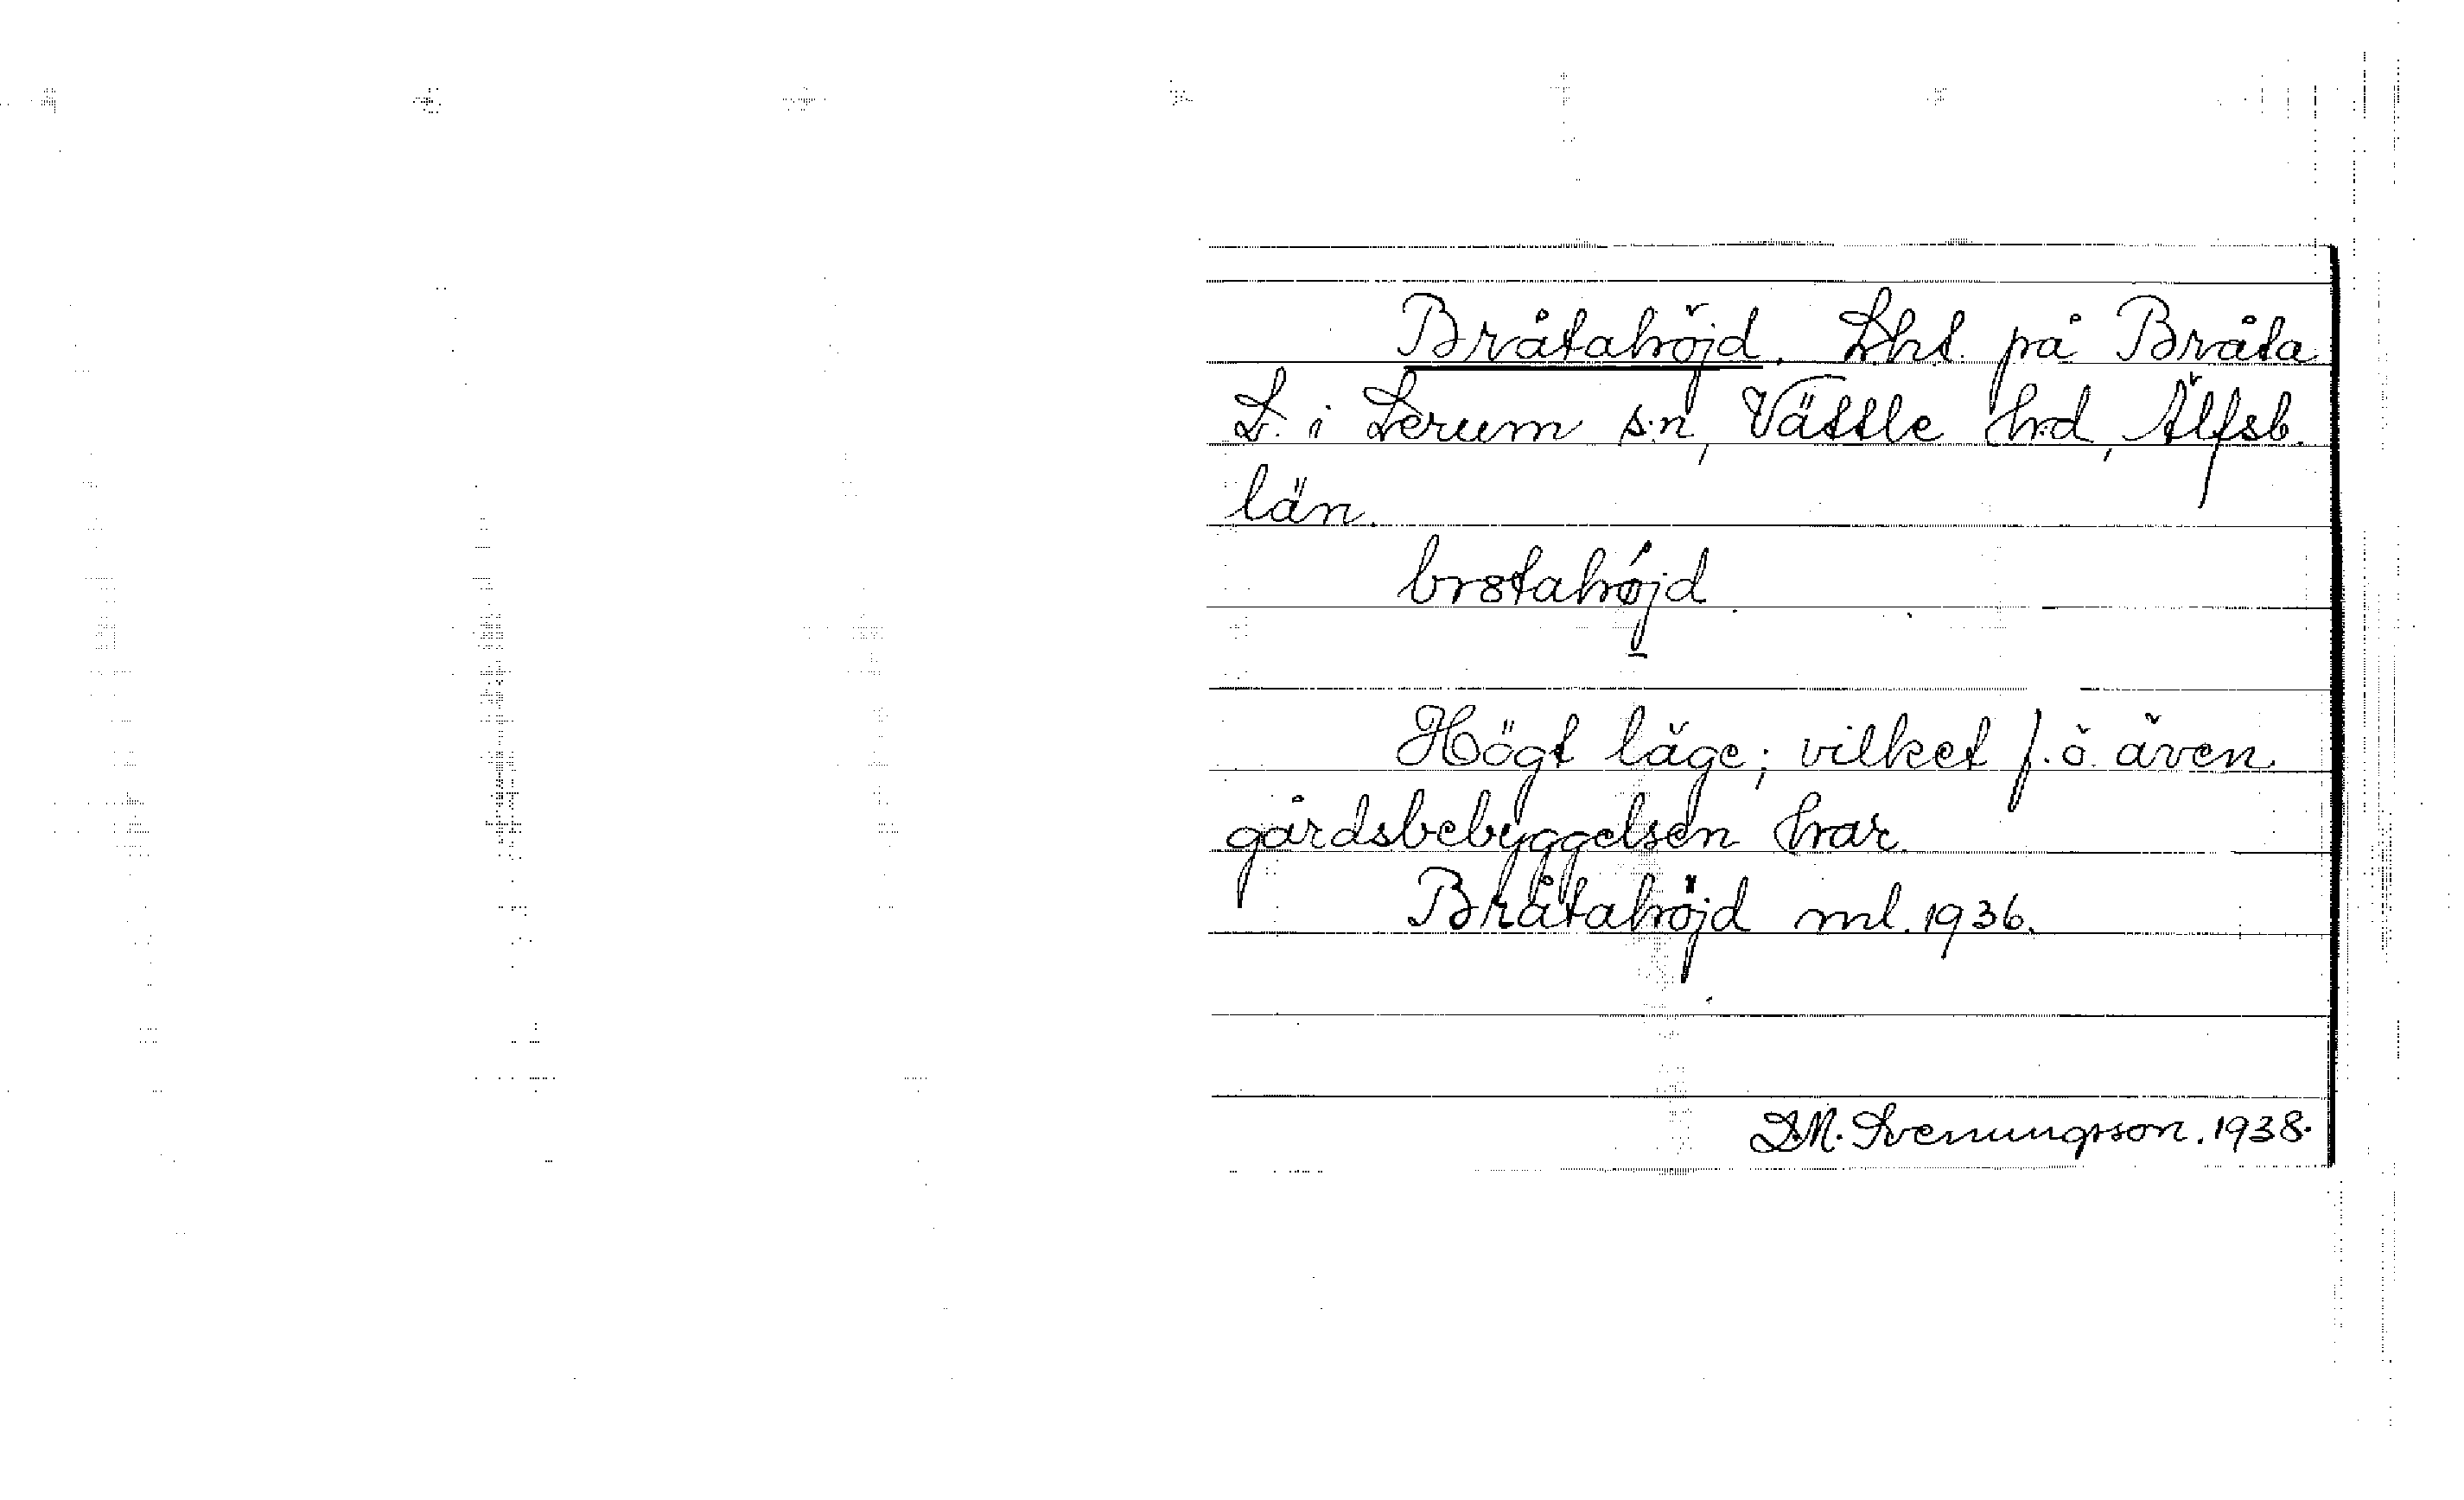 Bråtahöjd. Lht. på Bråta
L. i Lerum s:n, Vättle hrd, Älfsb.
län.
br8tahöjd
Högt läge; vilket f.ö. även
gårdsbebyggelsen har.
Bråtahöjd ml. 1936.
D.M. Svenungsson. 1938.